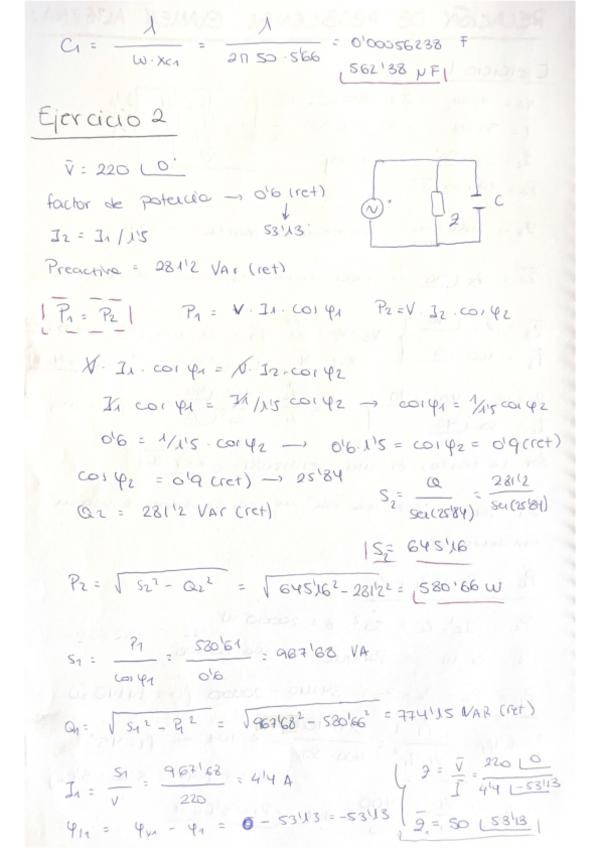 C1 = 1 / W·XC1 = 1 / 2π 50·5'66 = 0'00056238 F
562'38 μF
Ejercicio 2
V̄ = 220 ∠0°
factor de potencia → 0'6 (ret)
↓
53'13°
I2 = I1 / 1'5
Preactiva = 281'2 VAr (ret)
2
C
P1 = P2 P1 = V·I1·cos φ1 P2 = V·I2·cos φ2
V·I1·cos φ1 = V·I2·cos φ2
I1 cos φ1 = I1/1'5 cos φ2 → cos φ1 = 1/1'5 cos φ2
0'6 = 1/1'5·cos φ2 → 0'6·1'5 = cos φ2 = 0'9 (ret)
cos φ2 = 0'9 (ret) → 25'84
S2 = Q / sen(25'84) = 281'2 / sen(25'84)
Q2 = 281'2 VAr (ret)
S2 = 645'16
P2 = √S2² - Q2² = √645'16² - 281'2² = 580'66 W
S1 = P1 / cos φ1 = 580'61 / 0'6 = 967'68 VA
Q1 = √S1² - P1² = √967'68² - 580'66² = 774'15 VAR (ret)
I1 = S1 / V = 967'68 / 220 = 4'4 A
z = V̄ / Ī = 220 ∠0 / 4'4 ∠-53'13
φI1 = φV1 - φ1 = 0 - 53'13 = -53'13
z̄ = 50 ∠53'13